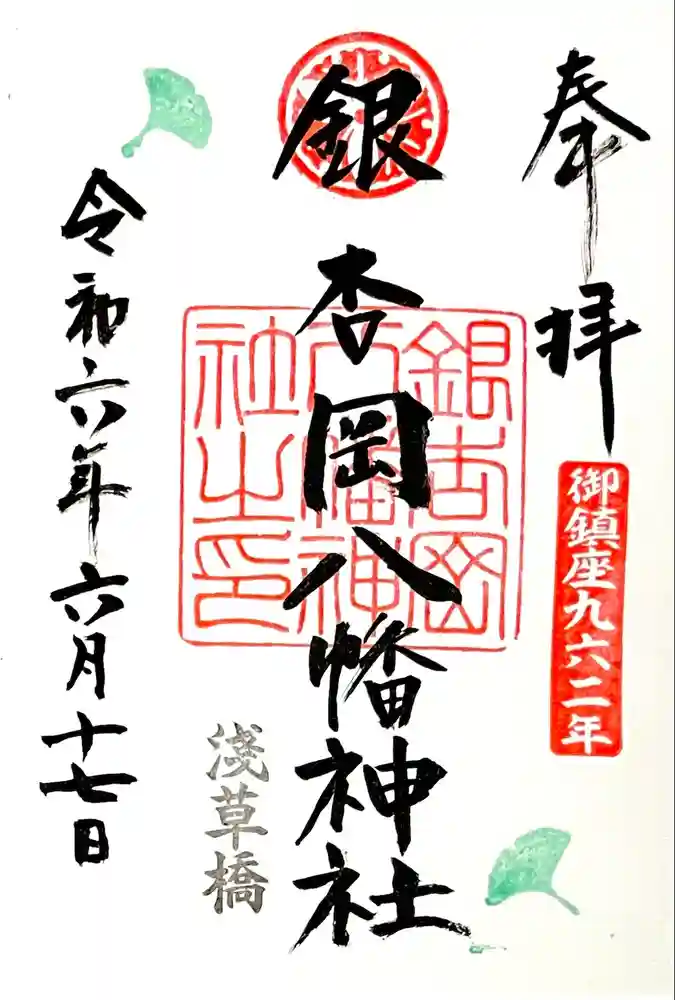 奉拝
御鎮座九六二年
銀杏岡八幡神社
銀杏岡
八幡神
社之印
淺草橋
令和六年六月十七日